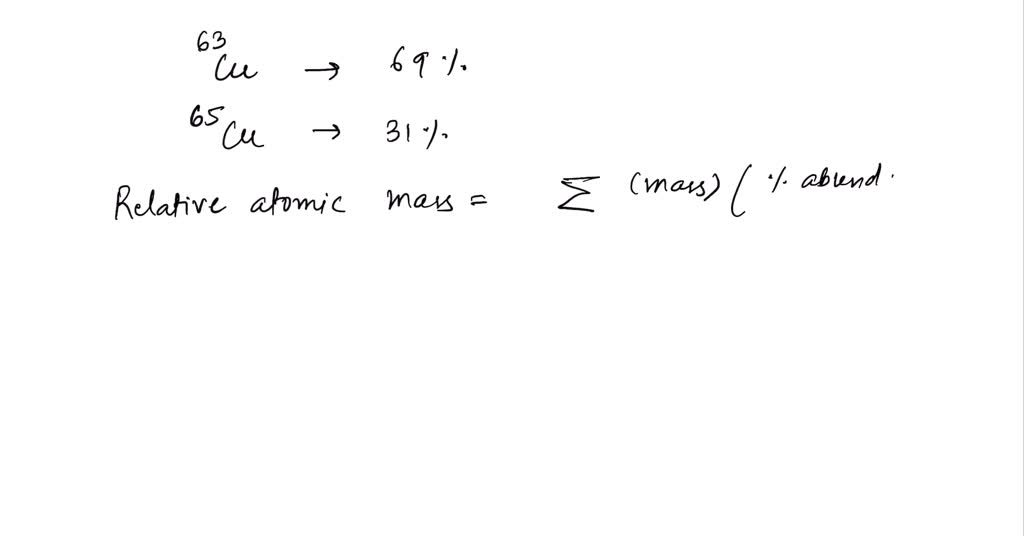 ⁶³Cu → 69 %
⁶⁵Cu → 31 %
Relative atomic mass = Σ (mass) ( % abund.